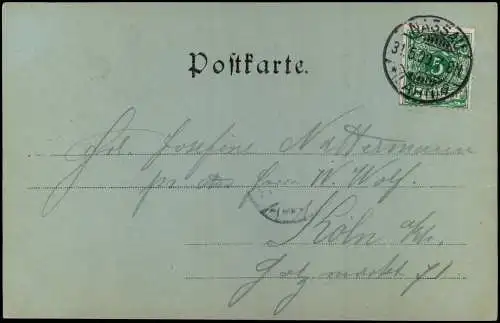 NASSAU
31.5.
(LAHN)
5
Postkarte.
Frl. Josefine Nattermann
pr. adr. Herrn W. Wolf.
Köln a/Rh.
Holzmarkt 71